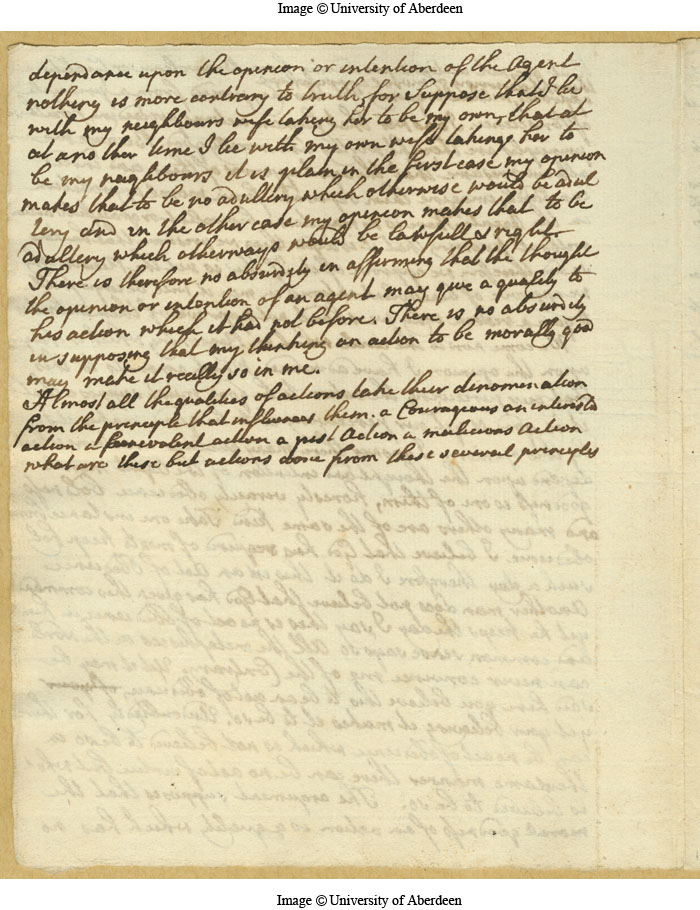 Image © University of Aberdeen
dependance upon the opinion or intention of the Agent
nothing is more contrary to truth, for Suppose that I lie
with my neighbours wife taking her to be my own, that at
at another time I lie with my own wife taking her to
be my neighbours it is plain in the first case my opinion
makes that to be no adultery which otherwise would be adul
tery and in the other case my opinion makes that to be
adultery which otherways would be lawfull & right
There is therefore no absurdity in affirming that the thought
the opinion or intention of an agent may give a quality to
his action which it had not before. There is no absurdity
in supposing that my thinking an action to be morally good
may make it really so in me.
Almost all the qualities of actions take their denomination
from the principle that influences them. a Courageous an interested
action a benevolent action a just Action a malicious Action
what are these but actions done from these several principles
Image © University of Aberdeen